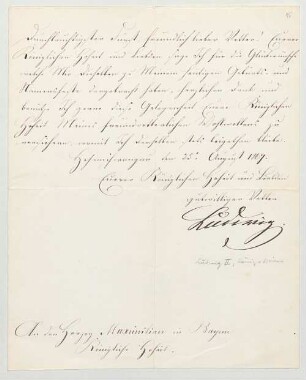 Durchlauchtigster Fürst freundlich lieber Vetter! Euerer
Königlichen Hoheit und Liebden sage Ich für die Glückwünsche,
welche Mir Dieselben zu Meinem heutigen Geburts- und
Namensfeste dargebracht haben, herzlichen Dank und
benütze Ich gerne diese Gelegenheit Euere Königliche
Hoheit Meiner freundvetterlichen zu
versichern, womit Ich Denselben stets beigethan bleibe.
Hohenschwangau den 25. August 1867.
Euerer Königlichen Hoheit und Liebden
gutwilliger Vetter
Ludwig.
Ludwig II.,
An den Herzog Maximilian in Bayern
Königliche Hoheit.